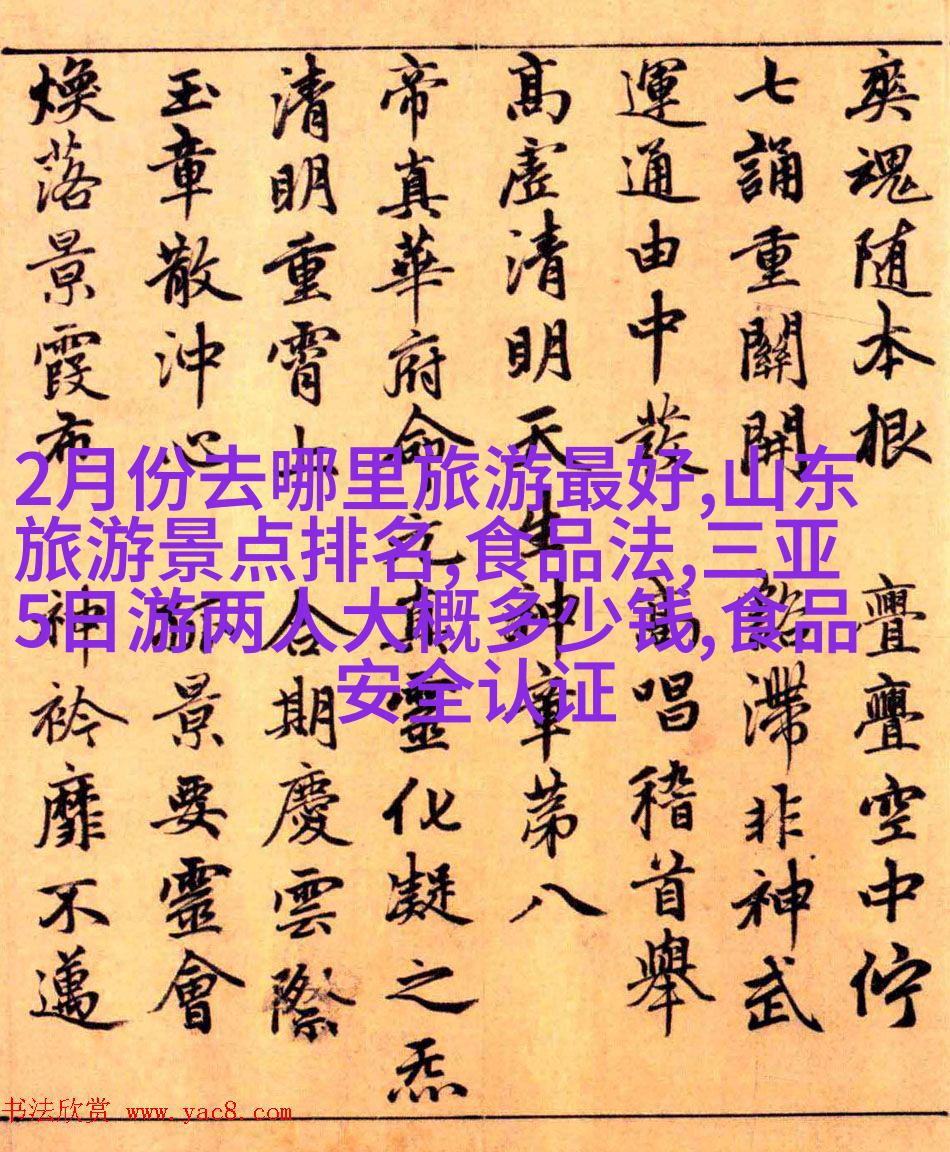 奕魂随本根亹亹空中佇
七誦重關開滯非神武
運通由中發高唱稽首舉
高虛清明天生神章第八
帝真華府命元真靈化凝之炁
清明重霄上合期慶雲際
玉章散沖心景要靈會
煥落景霞布神衿靡不邁
2月份去哪里旅游最好,山东
旅游景点排名,食品法,三亚
5日游两人大概多少钱,食品
安全认证
书法欣赏 www.yac8.com